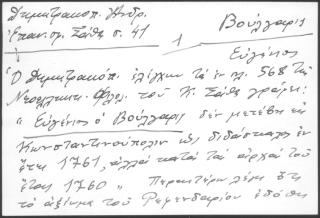 Δημητρακοπ. Ἀνδρ.
Ἐπαν. σφ. Σάθα σ. 41
Βούλγαρις
Εὐγένιος
1
Ὁ Δημητρακόπ. ἐλέγχων τὰ ἐν σλ. 568 τῆς
Νεοελληνικ. Φιλολ. τοῦ Κ. Σάθα γράφει:
" Εὐγένιος ὁ Βούλγαρις δὲν μετέβη εἰς
Κωνσταντινούπολιν ὡς διδάσκαλος ἐν
ἔτει 1761, ἀλλὰ κατὰ τὰς ἀρχὰς τοῦ
ἔτους 1760 " Περαιτέρω λέγει ὅτι
τὸ ἀξίωμα τοῦ Ρεφενδαρίου ἐδόθη